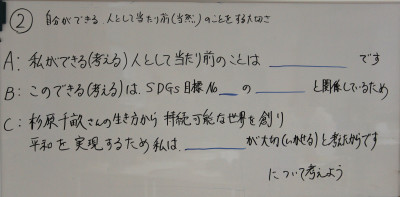 ② 自分ができる 人として当たり前(当然)のことをする大切さ
A: 私ができる(考える)人として当たり前のことは ______ です
B: このできる(考える)は、SDGs目標No__の______と関係しているため
C: 杉原千畝さんの生き方から 持続可能な世界を創り
平和を実現するため私は、______が大切(いかせる)と考えたからです
について考えよう